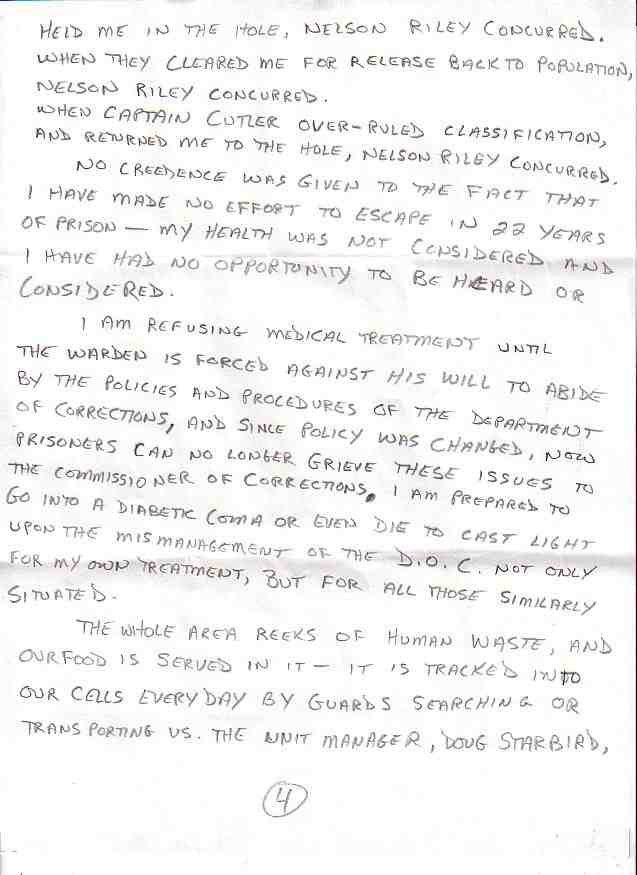 HELD ME IN THE HOLE, NELSON RILEY CONCURRED.
WHEN THEY CLEARED ME FOR RELEASE BACK TO POPULATION,
NELSON RILEY CONCURRED.
WHEN CAPTAIN CUTLER OVER-RULED CLASSIFICATION,
AND RETURNED ME TO THE HOLE, NELSON RILEY CONCURRED.
NO CREEDENCE WAS GIVEN TO THE FACT THAT
I HAVE MADE NO EFFORT TO ESCAPE IN 22 YEARS
OF PRISON — MY HEALTH WAS NOT CONSIDERED AND
I HAVE HAD NO OPPORTUNITY TO BE HEARD OR
CONSIDERED.
I AM REFUSING MEDICAL TREATMENT UNTIL
THE WARDEN IS FORCED AGAINST HIS WILL TO ABIDE
BY THE POLICIES AND PROCEDURES OF THE DEPARTMENT
OF CORRECTIONS, AND SINCE POLICY WAS CHANGED, NOW
PRISONERS CAN NO LONGER GRIEVE THESE ISSUES TO
THE COMMISSIONER OF CORRECTIONS. I AM PREPARED TO
GO INTO A DIABETIC COMA OR EVEN DIE TO CAST LIGHT
UPON THE MISMANAGEMENT OF THE D.O.C. NOT ONLY
FOR MY OWN TREATMENT, BUT FOR ALL THOSE SIMILARLY
SITUATED.
THE WHOLE AREA REEKS OF HUMAN WASTE, AND
OUR FOOD IS SERVED IN IT — IT IS TRACKED INTO
OUR CELLS EVERYDAY BY GUARDS SEARCHING OR
TRANSPORTING US. THE UNIT MANAGER, DOUG STARBIRD,
4